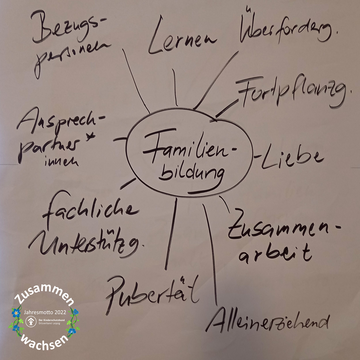 Bezugs-
personen
Lernen
Überforderg.
Fortpflanzg.
Ansprech-
partner*
innen
Familien-
bildung
Liebe
fachliche
Unterstützg.
Zusammen-
arbeit
Pubertät
Alleinerziehend
Zusammen
Jahresmotto 2022
wachsen